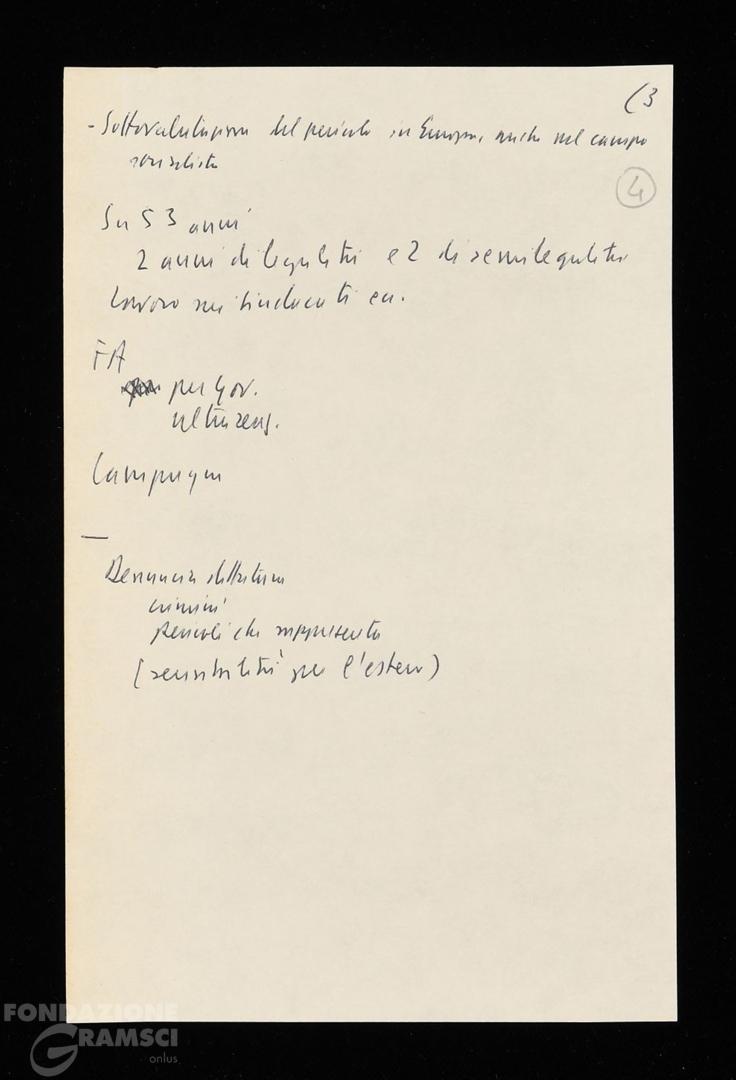 (3
- Sottovalutazione del pericolo in Europa, anche nel campo
socialista
4
Su 53 anni
2 anni di legalità e 2 di semilegalità
Lavoro nei sindacati ecc.
FA
per Gov.
Campagna
—
Denuncia dittatura
crimini
pericoli che rappresenta
(sensibilità per l'estero)
FONDAZIONE
GRAMSCI
onlus